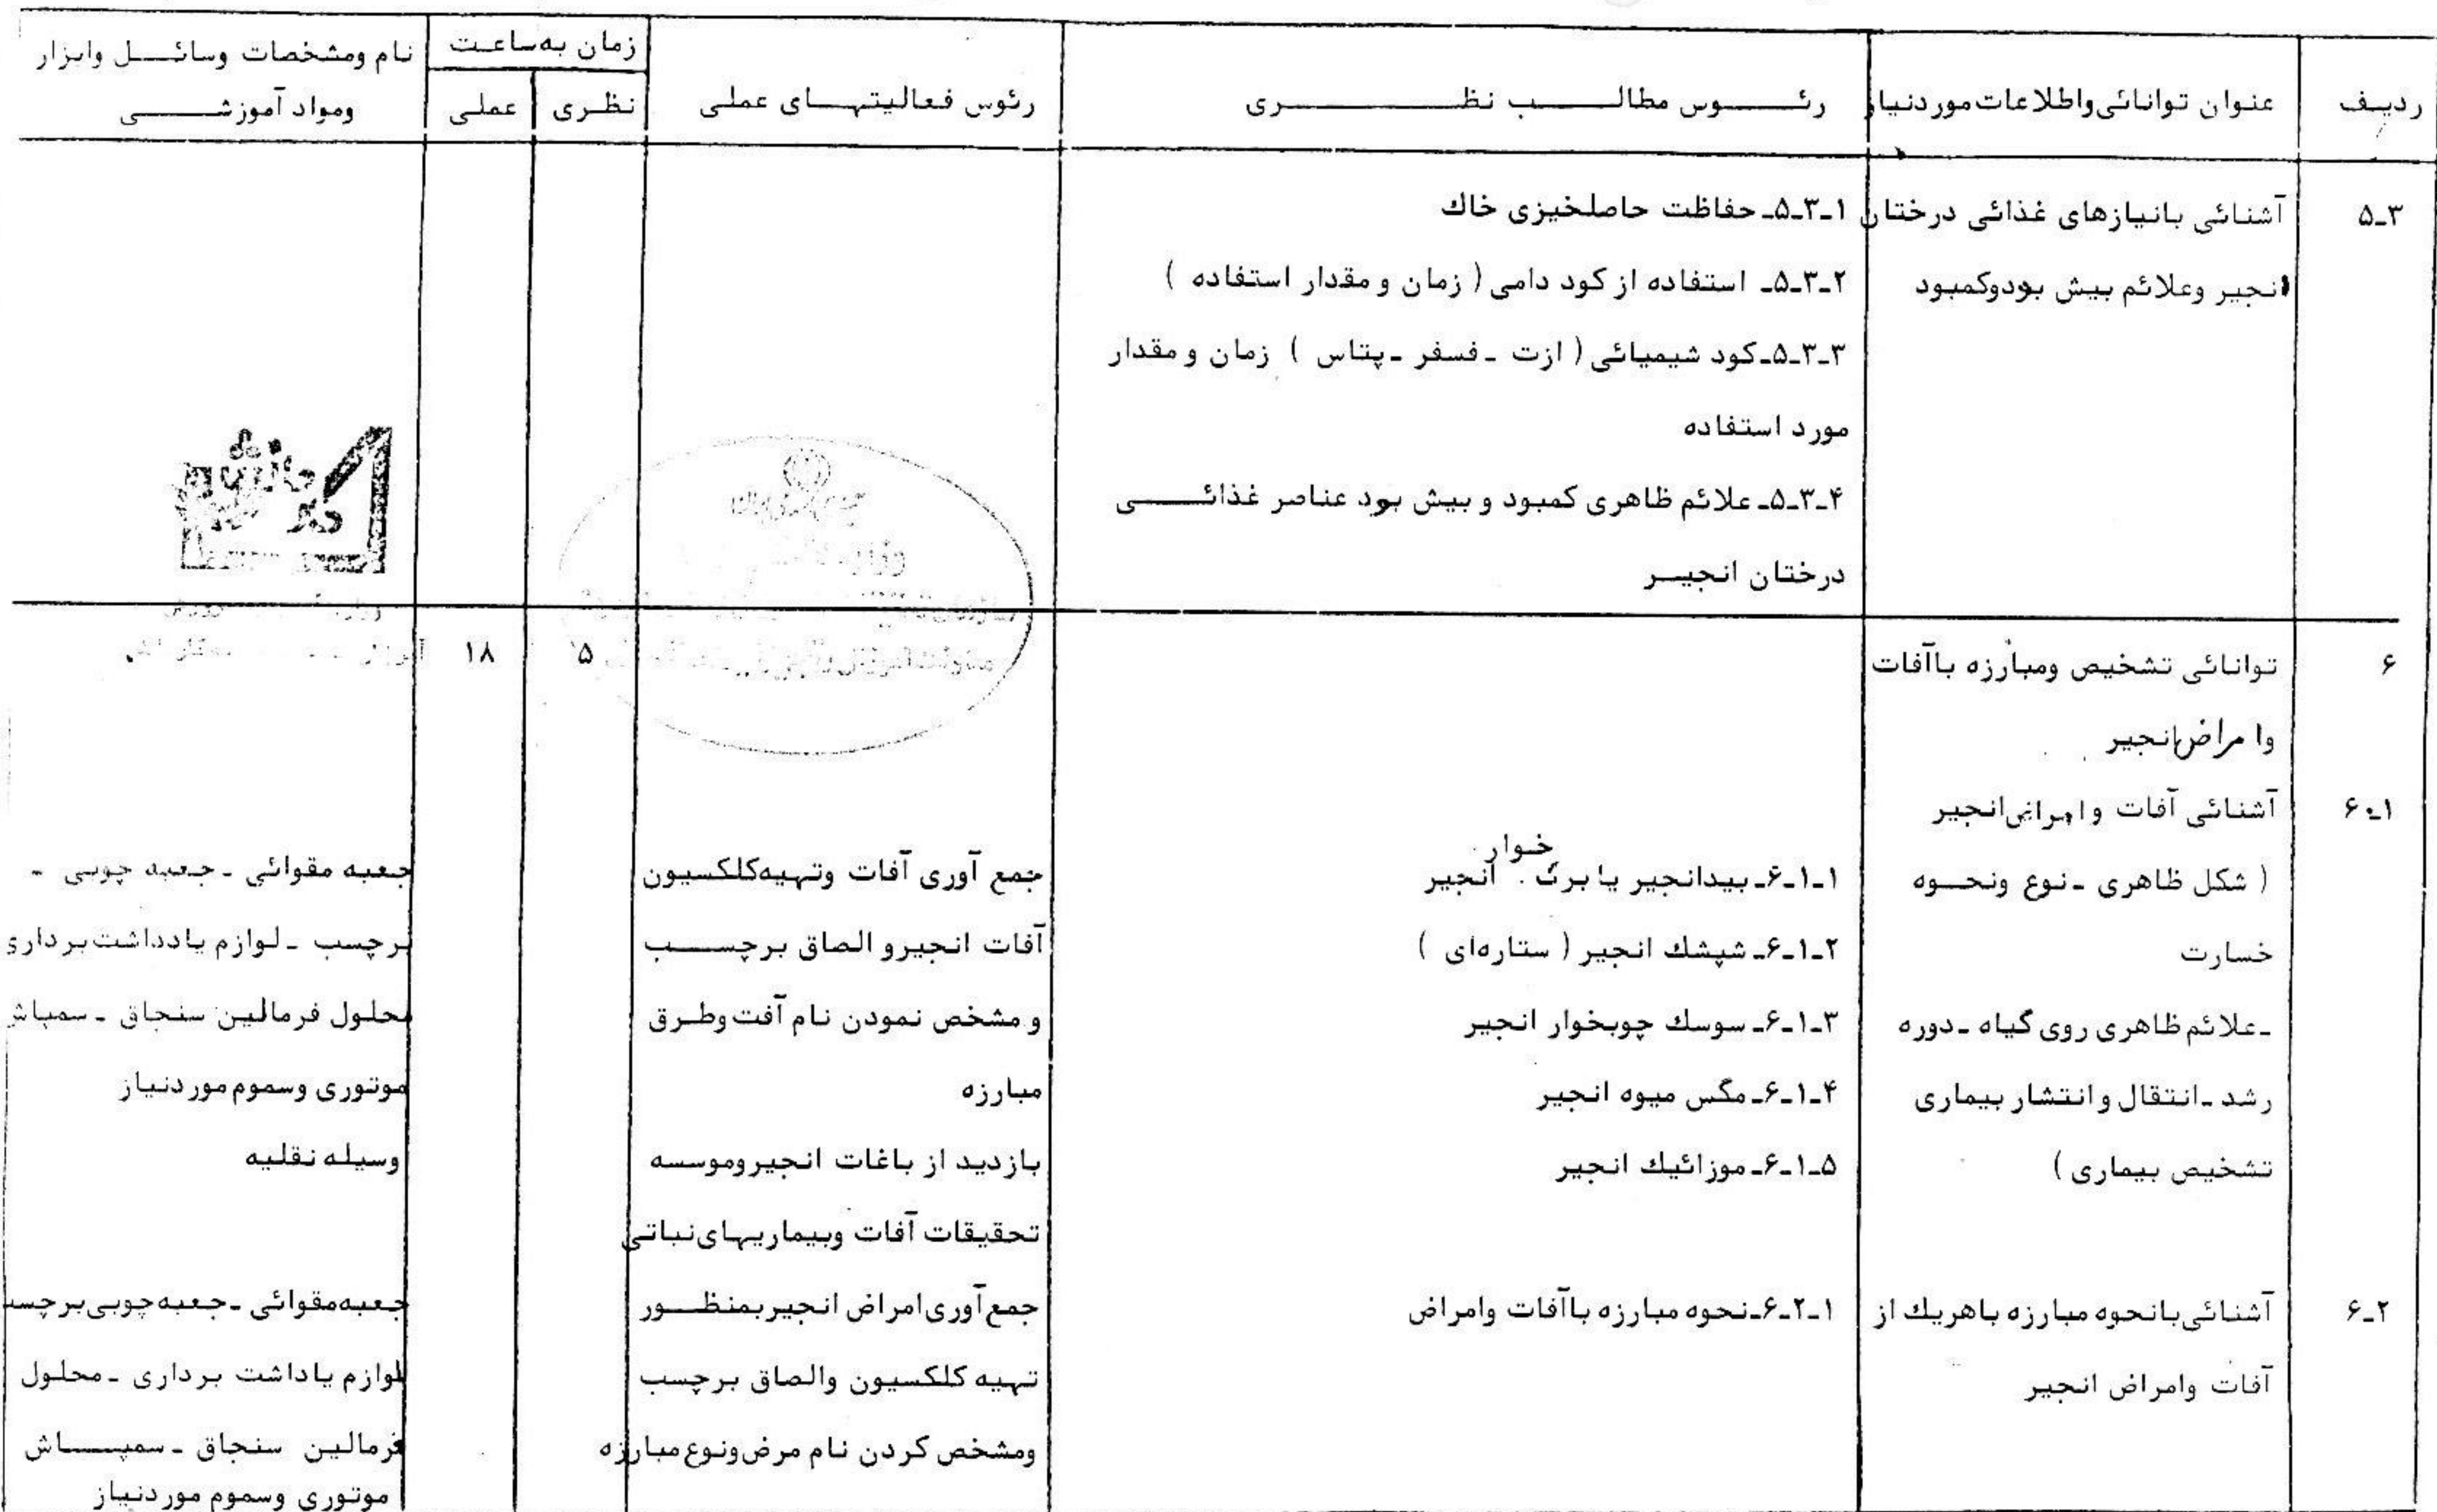 ردیف
عنوان توانائی واطلاعات موردنیاز
رئوس مطالب نظری
رئوس فعالیتهای عملی
زمان به ساعت
نظری
عملی
نام ومشخصات وسائل وابزار
ومواد آموزشی
۵-۳
آشنائی بانیازهای غذائی درختان
انجیر وعلائم بیش بودوکمبود
۵-۳-۱- حفاظت حاصلخیزی خاك
۵-۳-۲- استفاده از کود دامی ( زمان و مقدار استفاده )
۵-۳-۳- کود شیمیائی ( ازت - فسفر - پتاس ) زمان و مقدار
مورد استفاده
۵-۳-۴- علائم ظاهری کمبود و بیش بود عناصر غذائی
درختان انجیر
۶
توانائی تشخیص ومبارزه باآفات
وا مراض انجیر
۵
۱۸
۶-۱
آشنائی آفات وامراض انجیر
( شکل ظاهری - نوع ونحوه
خسارت
- علائم ظاهری روی گیاه - دوره
رشد - انتقال و انتشار بیماری
تشخیص بیماری )
خوار
۶-۱-۱- بیدانجیر یا برگ . انجیر
۶-۱-۲- شپشك انجیر ( ستاره‌ای )
۶-۱-۳- سوسك چوبخوار انجیر
۶-۱-۴- مگس میوه انجیر
۶-۱-۵- موزائیك انجیر
جمع آوری آفات وتهیه کلکسیون
آفات انجیرو الصاق برچسب
و مشخص نمودن نام آفت وطرق
مبارزه
بازدید از باغات انجیروموسسه
تحقیقات آفات وبیماریهای نباتی
جعبه مقوائی - جعبه چوبی -
برچسب - لوازم یادداشت برداری
محلول فرمالین سنجاق - سمپاش
موتوری وسموم موردنیاز
وسیله نقلیه
۶-۲
آشنائی بانحوه مبارزه باهریك از
آفات وامراض انجیر
۶-۲-۱- نحوه مبارزه باآفات وامراض
جمع آوری امراض انجیربمنظور
تهیه کلکسیون والصاق برچسب
ومشخص کردن نام مرض ونوع مبارزه
جعبه مقوائی - جعبه چوبی برچسب
لوازم یاداشت برداری - محلول
فرمالین سنجاق - سمپاش
موتوری وسموم موردنیاز